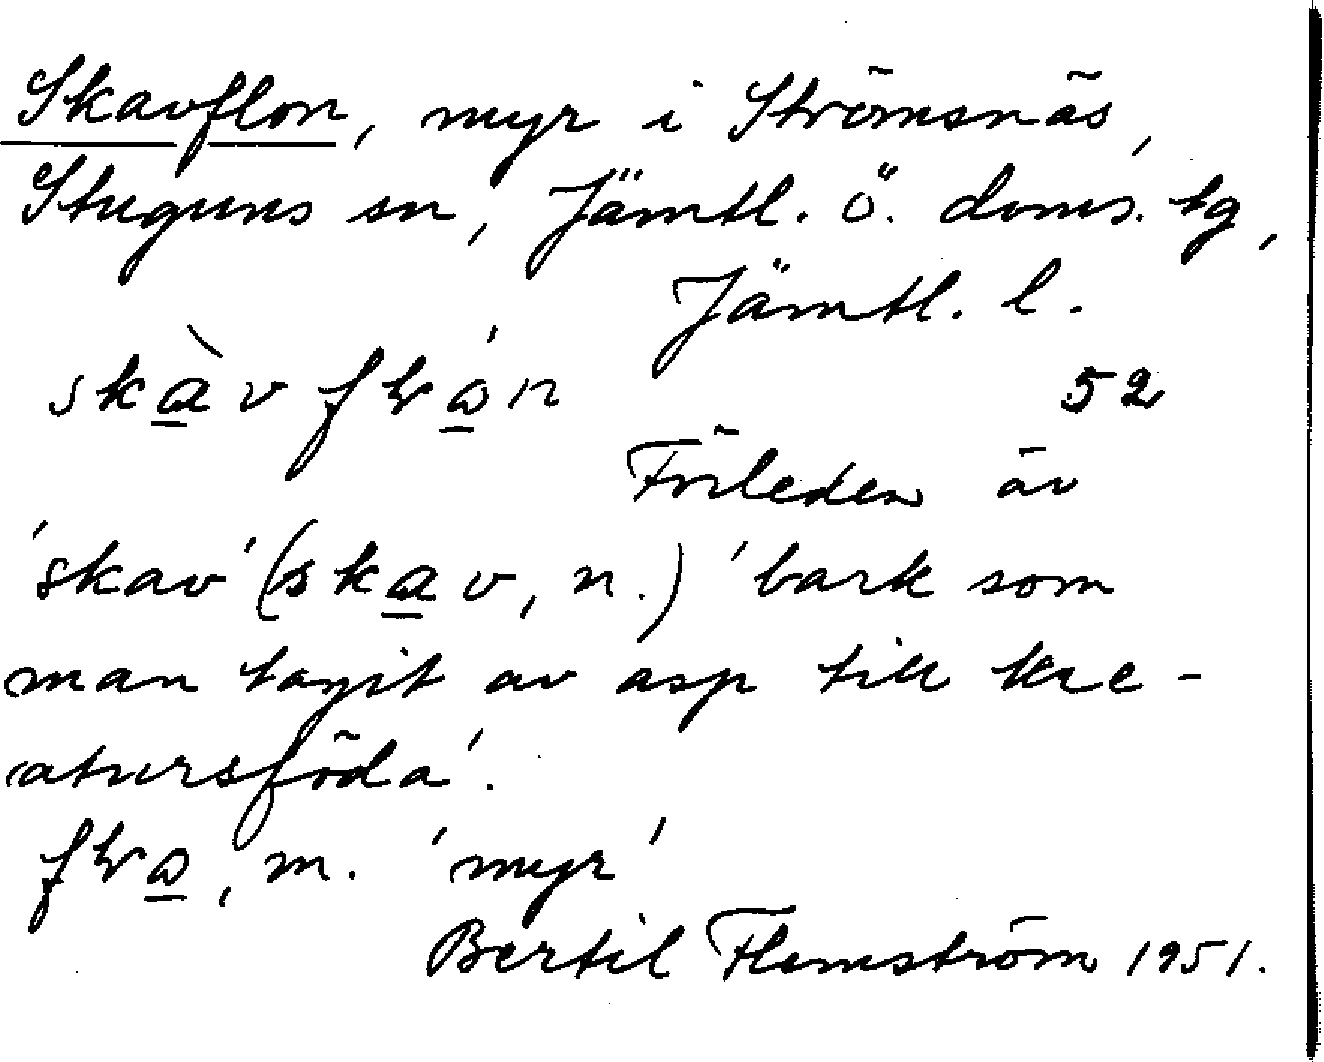 Skavflon, myr i Strömsnäs,
Stuguns sn, Jämtl. ö. doms. tg,
Jämtl. l.
52
Förleden är
'skav' (skav, n.) 'bark som
man tagit av asp till kre-
atursföda'.
, m. 'myr'
Bertil Flemström 1951.